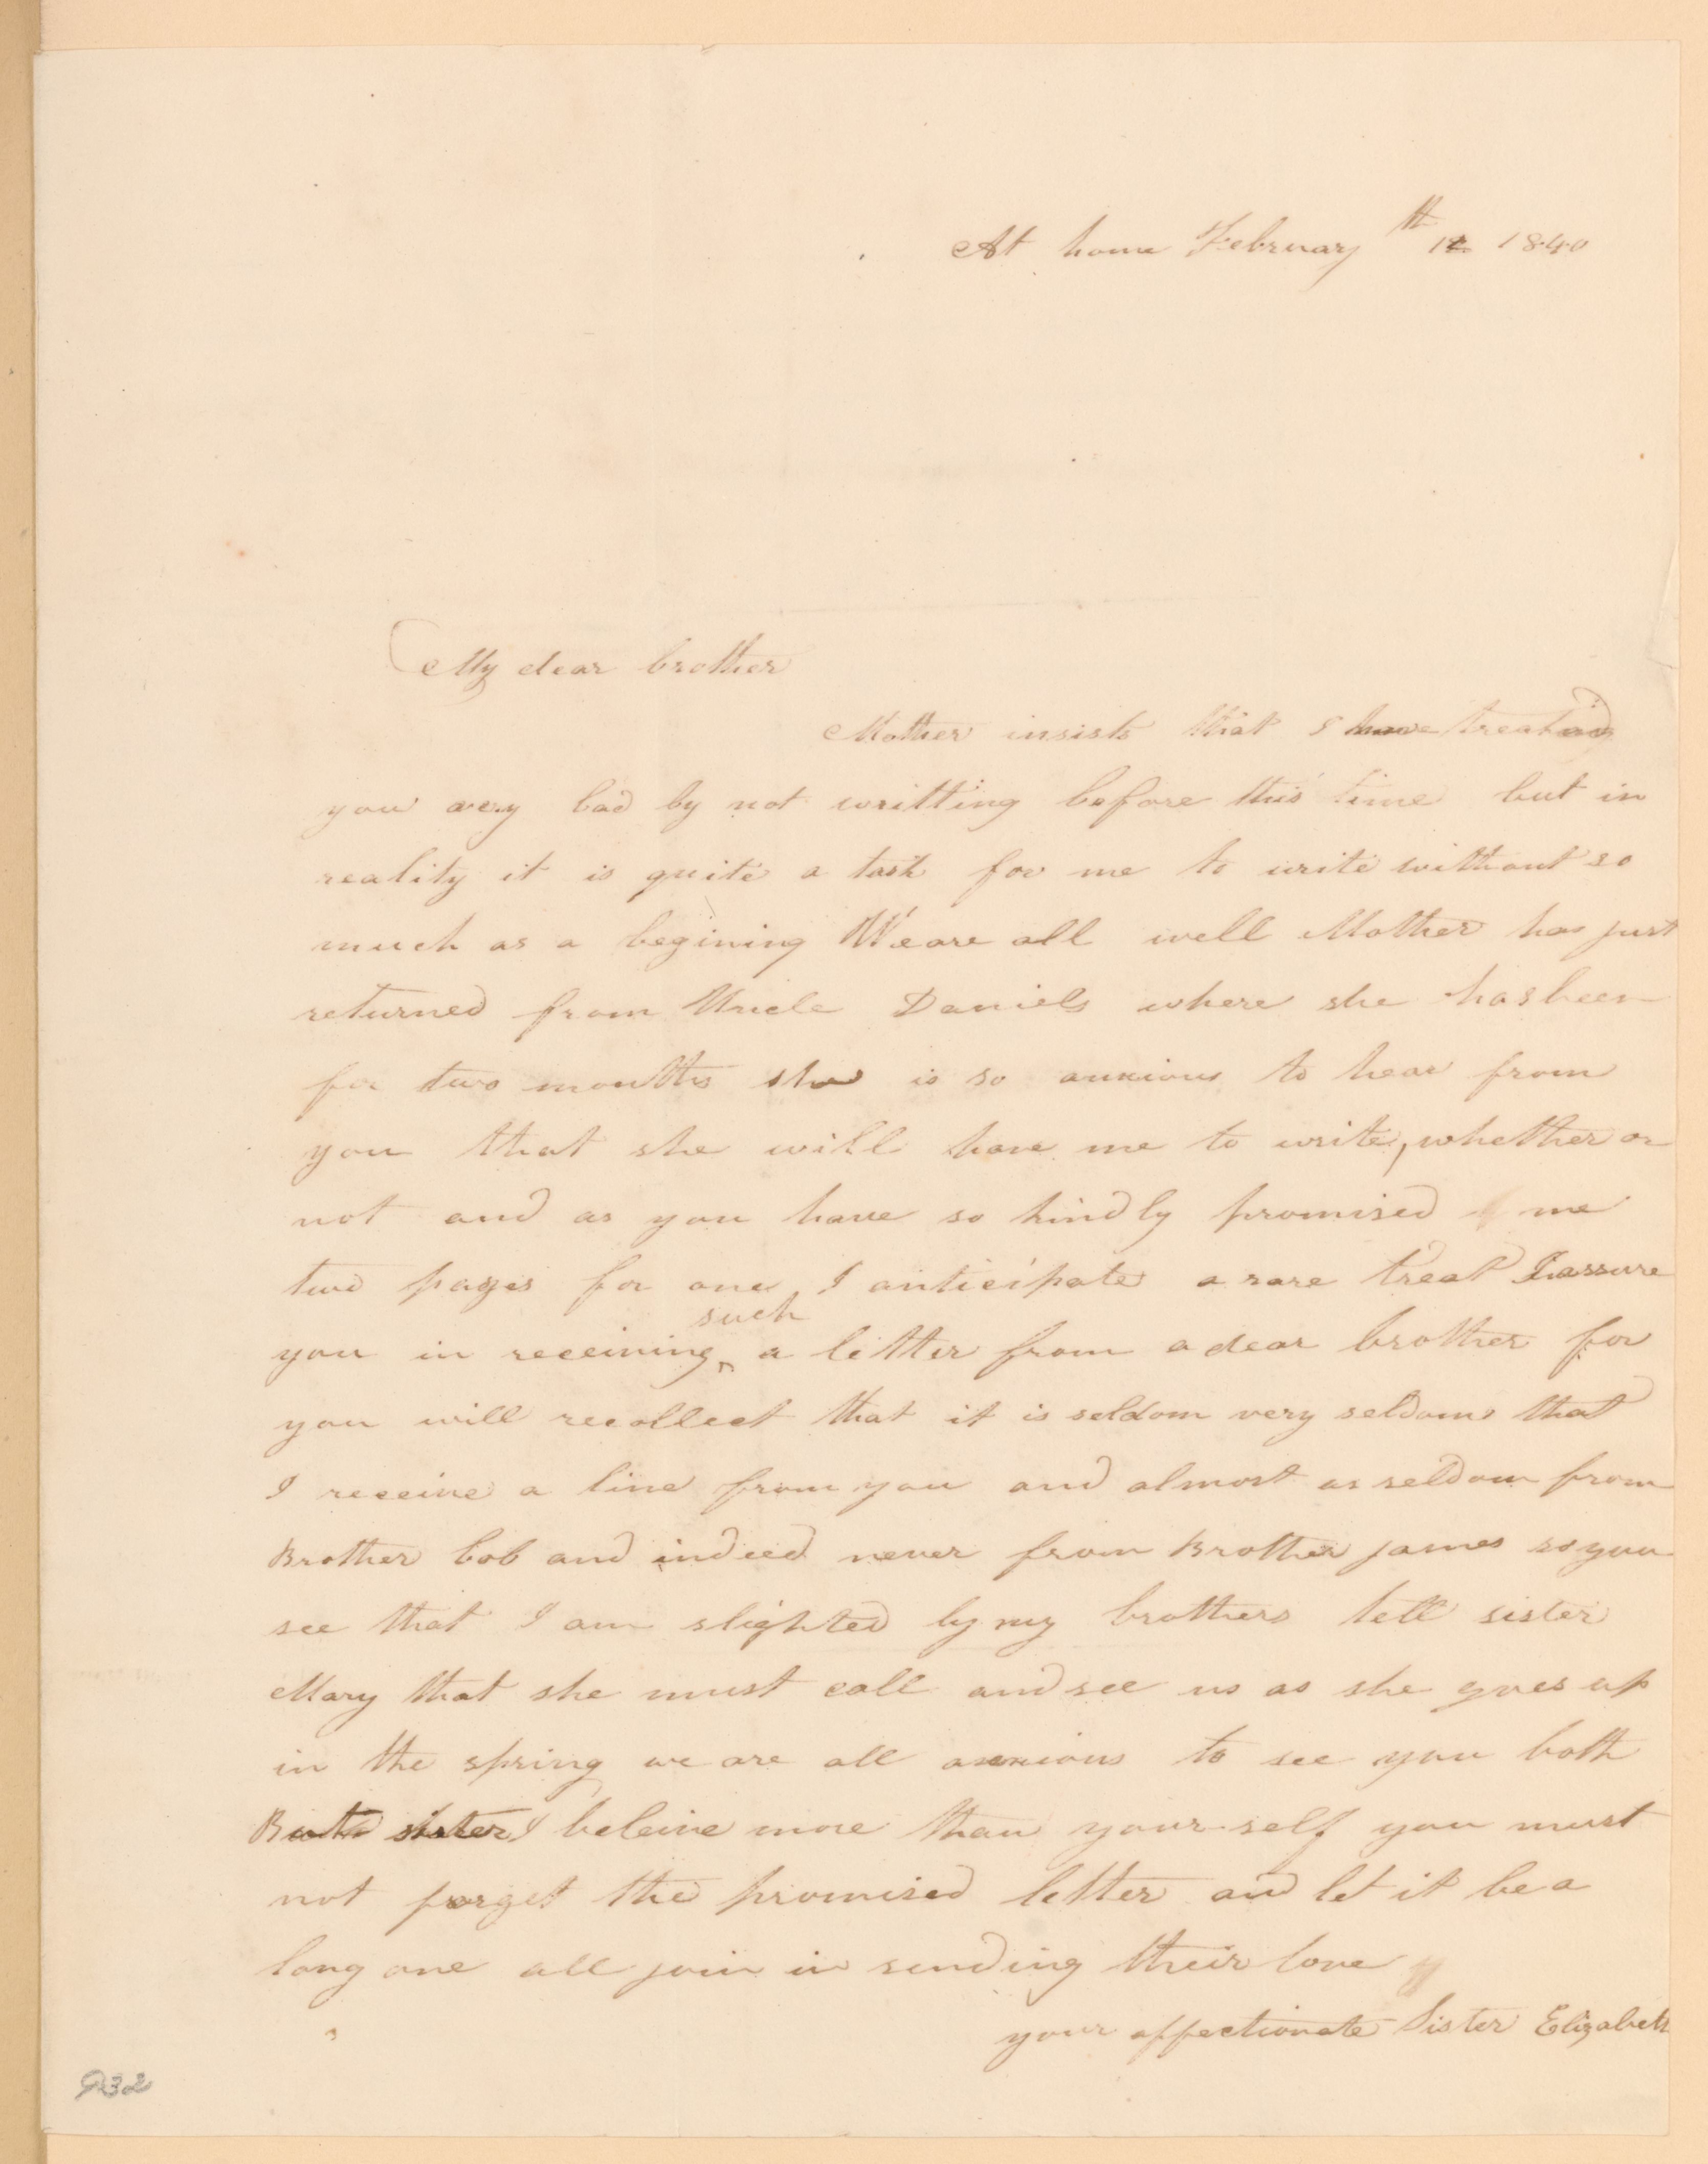 At home February 12th 1840
My dear brother
Mother insists that I have treated
you very bad by not writting before this time but in
reality it is quite a task for me to write without so
much as a begining We are all well Mother has just
returned from Uncle Daniels where she has been
for two months she is so anxious to hear from
you that she will have me to write, whether or
not and as you have so kindly promised me
two pages for one I anticipate a rare treat I assure
you in receiving such a letter from a dear brother for
you will recollect that it is seldom very seldom that
I receive a line from you and almost as seldom from
Brother bob and indeed never from Brother james so you
see that I am slighted by my brothers tell sister
Mary that she must call and see us as she goes up
in the spring we are all anxious to see you both
But sister I beleive more than your self you must
not forget the promised letter and let it be a
long one all join in sending their love
your affectionate Sister Elizabeth
932